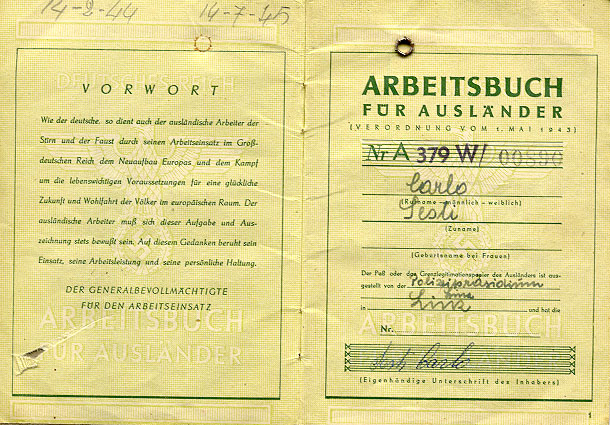 14-2-44 14-7-45
DEUTSCHES REICH
VORWORT
Wie der deutsche, so dient auch der ausländische Arbeiter der
Stirn und der Faust durch seinen Arbeitseinsatz im Groß-
deutschen Reich dem Neuaufbau Europas und dem Kampf
um die lebenswichtigen Voraussetzungen für eine glückliche
Zukunft und Wohlfahrt der Völker im europäischen Raum. Der
ausländische Arbeiter muß sich dieser Aufgabe und Aus-
zeichnung stets bewußt sein. Auf diesem Gedanken beruht sein
Einsatz, seine Arbeitsleistung und seine persönliche Haltung.
DER GENERALBEVOLLMÄCHTIGTE
FÜR DEN ARBEITSEINSATZ
ARBEITSBUCH
FÜR AUSLÄNDER
ARBEITSBUCH
FÜR AUSLÄNDER
(VERORDNUNG VOM 1. MAI 1943)
Nr A 379 W/ 00590
Carlo
(Rufname – männlich – weiblich)
Testi
(Zuname)
(Geburtsname bei Frauen)
Der Paß oder das Grenzlegitimationspapier des Ausländers ist aus-
gestellt von der Polizeipräsidium
in Linz und hat die
Nr.
ARBEITSBUCH
FÜR AUSLÄNDER
Testi Carlo
(Eigenhändige Unterschrift des Inhabers)
1